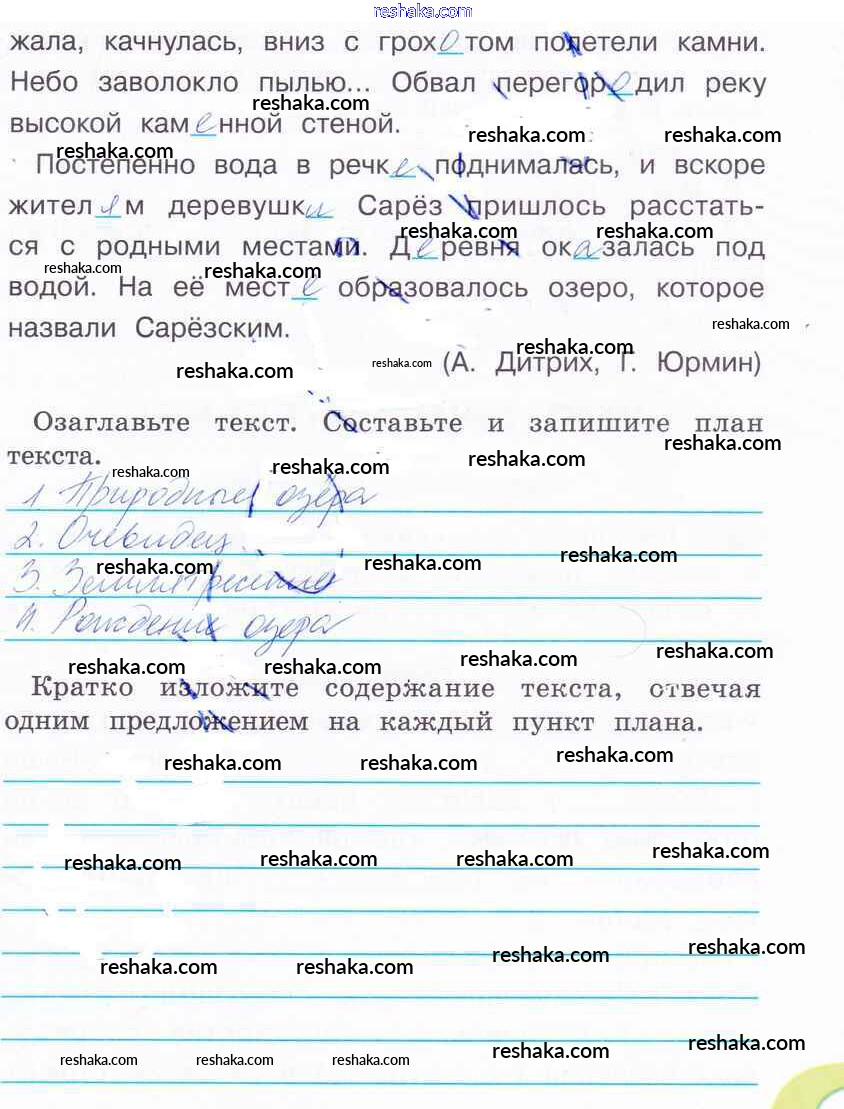 reshaka.com
жала, качнулась, вниз с грохотом полетели камни.
Небо заволокло пылью... Обвал перегородил реку
reshaka.com
высокой каменной стеной.
reshaka.com reshaka.com
reshaka.com
Постепенно вода в речке поднималась, и вскоре
жителям деревушки Сарёз пришлось расстать-
reshaka.com reshaka.com reshaka.com
ся с родными местами. Деревня оказалась под
reshaka.com reshaka.com reshaka.com
водой. На её месте образовалось озеро, которое
назвали Сарёзским.
reshaka.com
reshaka.com
reshaka.com reshaka.com (А. Дитрих, Г. Юрмин)
Озаглавьте текст. Составьте и запишите план
текста.
reshaka.com reshaka.com reshaka.com reshaka.com
1. Природные озёра
2. Очевидец.
reshaka.com reshaka.com reshaka.com
3. Землятресение
4. Рождение озера
reshaka.com reshaka.com reshaka.com reshaka.com
Кратко изложите содержание текста, отвечая
одним предложением на каждый пункт плана.
reshaka.com reshaka.com reshaka.com
reshaka.com reshaka.com reshaka.com reshaka.com
reshaka.com reshaka.com reshaka.com reshaka.com
reshaka.com reshaka.com reshaka.com reshaka.com reshaka.com